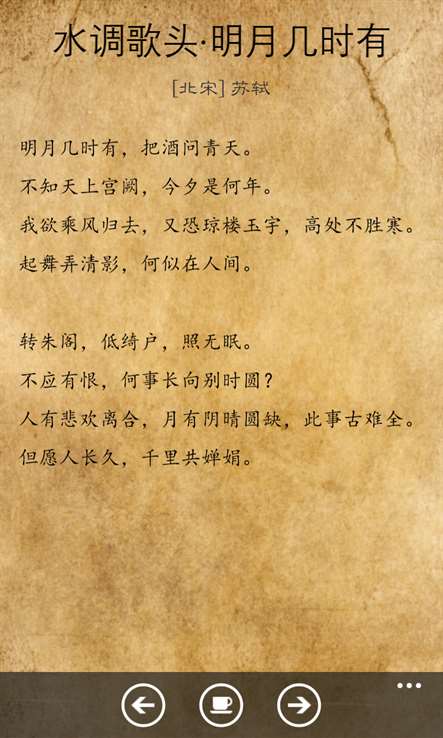 水调歌头·明月几时有
[北宋] 苏轼
明月几时有，把酒问青天。
不知天上宫阙，今夕是何年。
我欲乘风归去，又恐琼楼玉宇，高处不胜寒。
起舞弄清影，何似在人间。
转朱阁，低绮户，照无眠。
不应有恨，何事长向别时圆？
人有悲欢离合，月有阴晴圆缺，此事古难全。
但愿人长久，千里共婵娟。